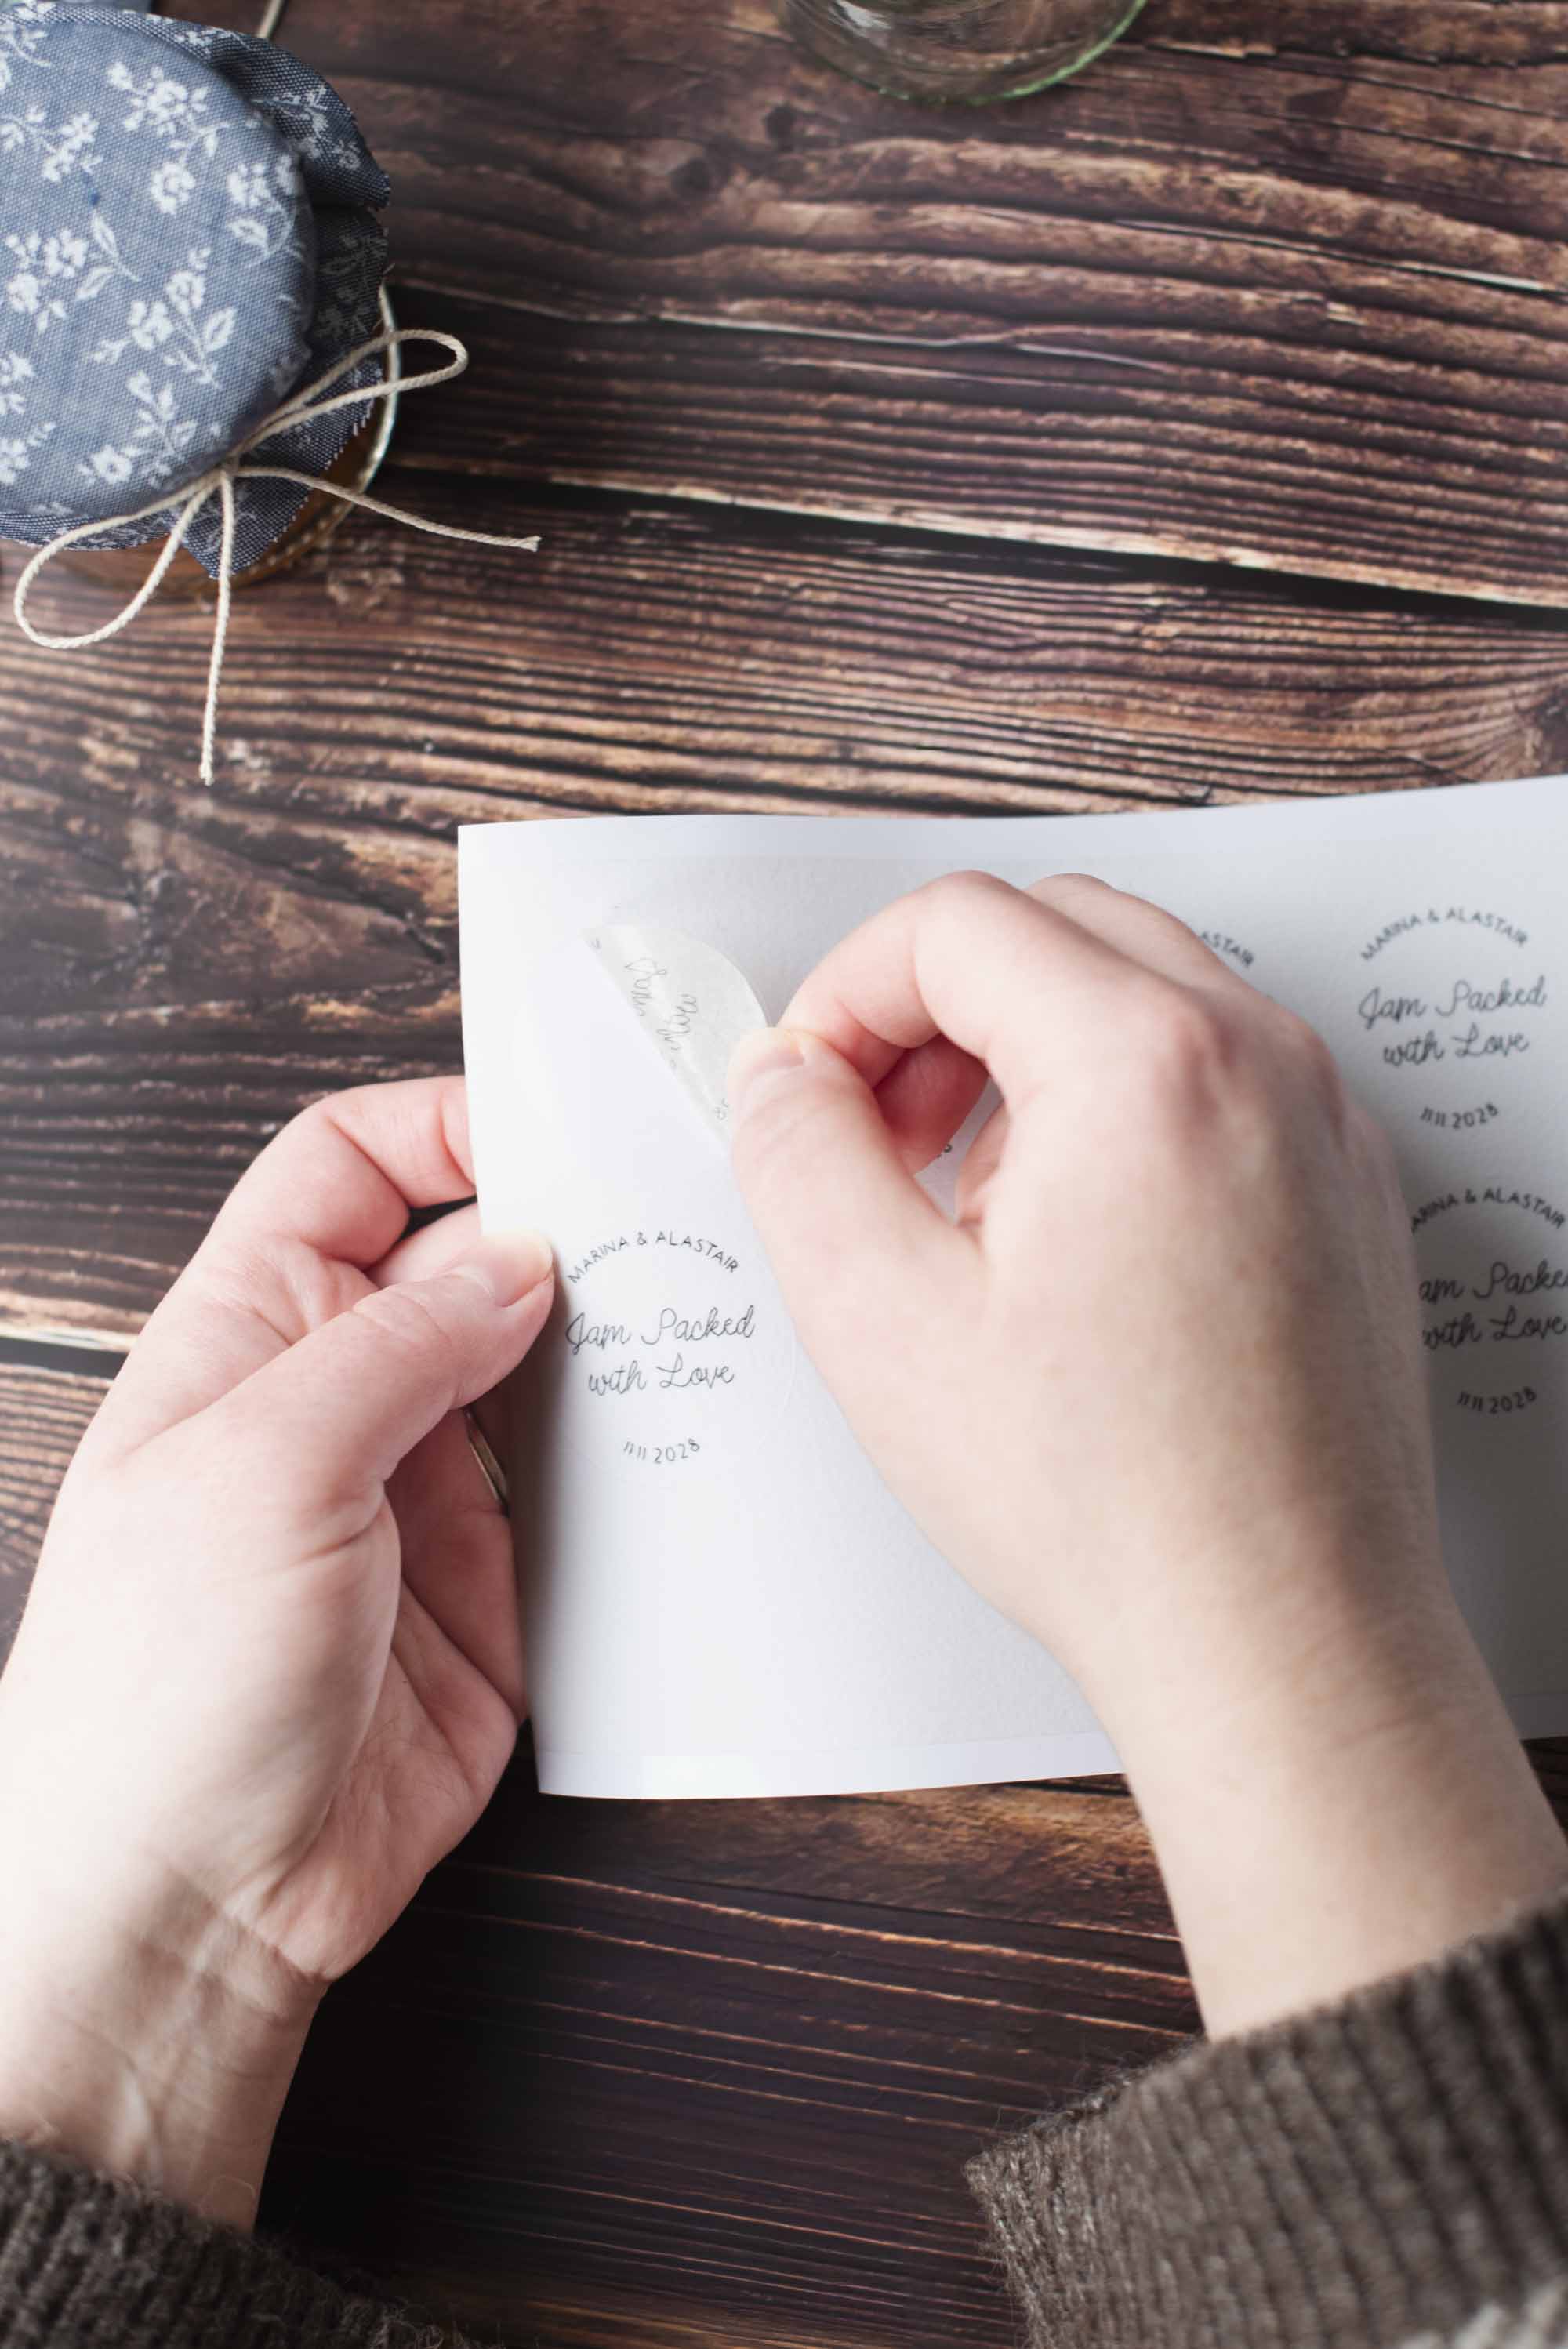 MARINA & ALASTAIR
Jam Packed
with Love
11 11 2028
MARINA & ALASTAIR
Jam Packed
with Love
11 11 2028
ALASTAIR
Packed
with Love
11 11 2028